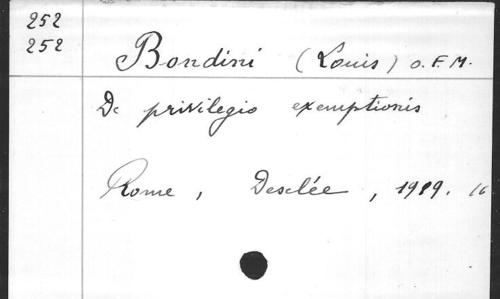 252
252
Bondini (Louis) O.F.M.
De privilegio exemptionis
Rome, Desclée, 1919. 16